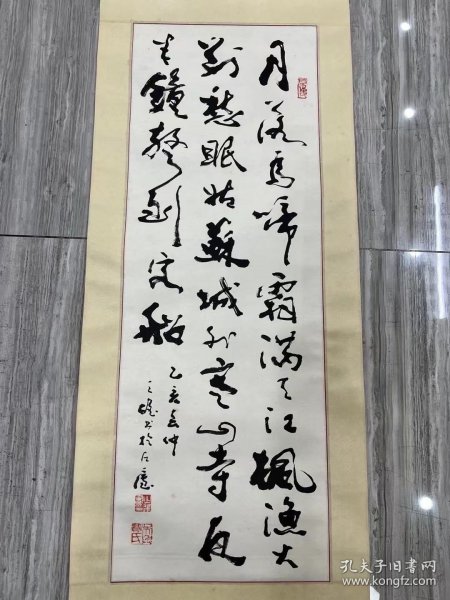 月落烏啼霜滿天江楓漁火
對愁眠姑蘇城外寒山寺夜
半鐘聲到客船
乙亥春仲
書於
孔夫子旧书网
www.kongfz.com